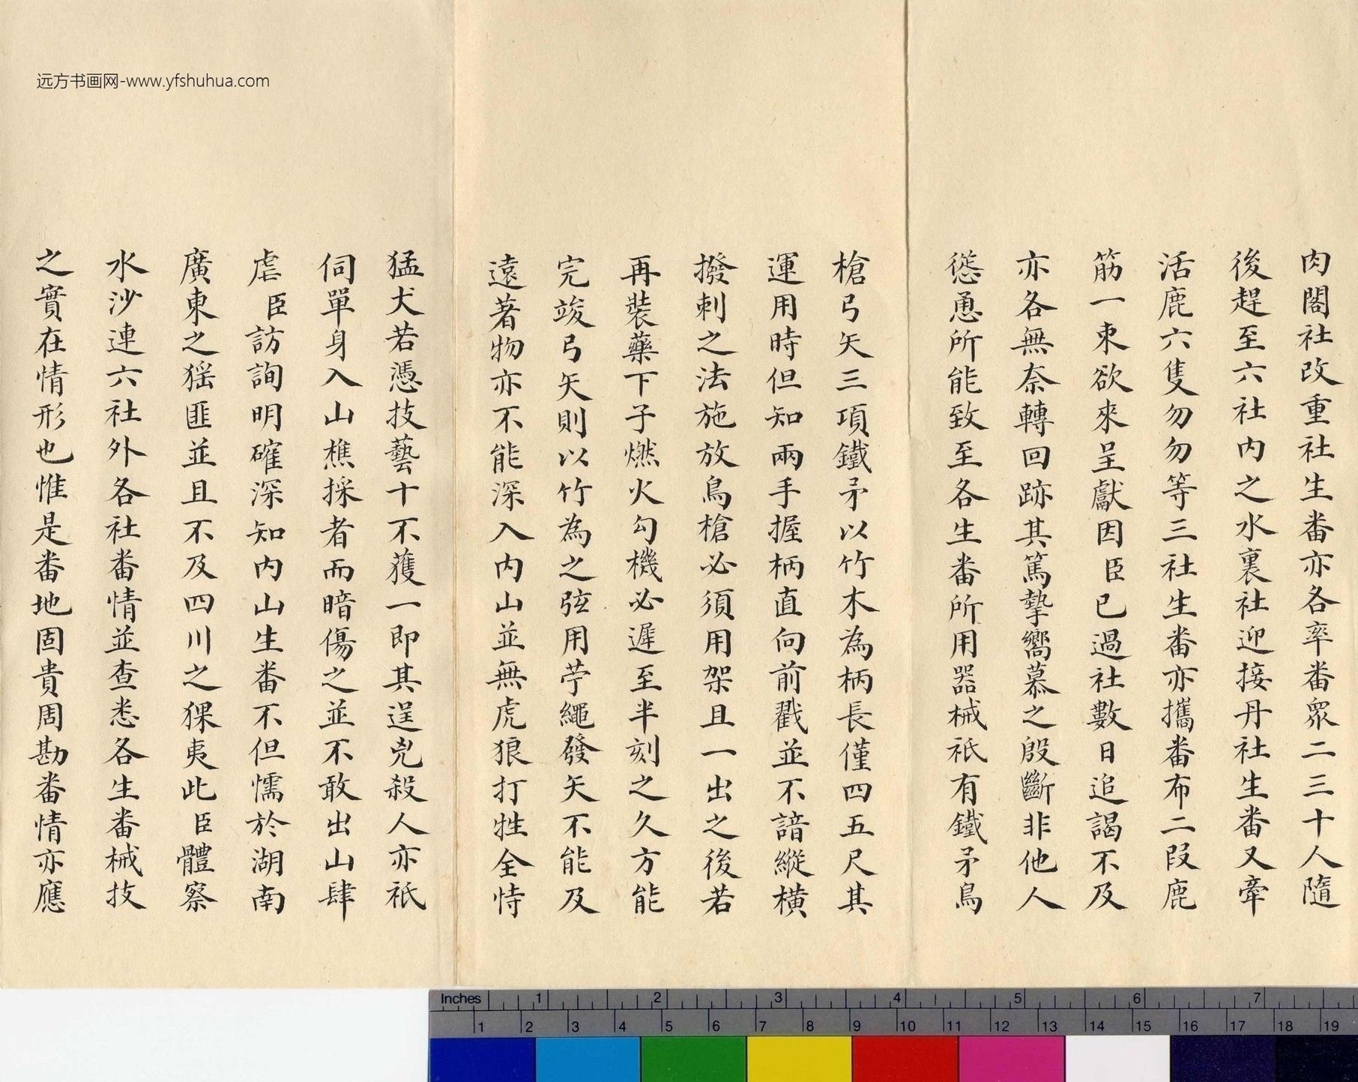 远方书画网-www.yfshuhua.com
肉閣社改重社生番亦各率番眾二三十人隨
後趕至六社內之水裏社迎接丹社生番又牽
活鹿六隻勿勿等三社生番亦攜番布二段鹿
筋一束欲來呈獻因臣已過社數日追謁不及
亦各無奈轉回跡其篤摯嚮慕之殷斷非他人
慫恿所能致至各生番所用器械祇有鐵矛鳥
槍弓矢三項鐵矛以竹木為柄長僅四五尺其
運用時但知兩手握柄直向前戳並不諳縱橫
撥刺之法施放鳥槍必須用架且一出之後若
再裝藥下子燃火勾機必遲至半刻之久方能
完竣弓矢則以竹為之弦用苧繩發矢不能及
遠著物亦不能深入內山並無虎狼打牲全恃
猛犬若憑技藝十不獲一即其逞兇殺人亦祇
伺單身入山樵採者而暗傷之並不敢出山肆
虐臣訪詢明確深知內山生番不但懦於湖南
廣東之猺匪並且不及四川之猓夷此臣體察
水沙連六社外各社番情並查悉各生番械技
之實在情形也惟是番地固貴周勘番情亦應
Inches 1 2 3 4 5 6 7
1 2 3 4 5 6 7 8 9 10 11 12 13 14 15 16 17 18 19